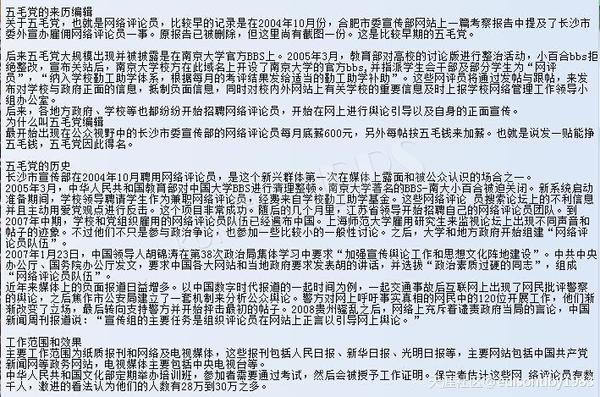 五毛党的来历编辑
关于五毛党，也就是网络评论员，比较早的记录是在2004年10月份，合肥市委宣传部网站上一篇考察报告中提及了长沙市
委外宣办雇佣网络评论员一事。原报告已被删除，但这里尚有截图一份。这是比较早期的五毛党。
后来五毛党大规模出现并被披露是在南京大学官方BBS上。2005年3月，教育部对高校的讨论版进行整治活动，小百合bbs拒
绝整改，宣布关站后，南京大学校方在此域名上开设了南京大学的官方bbs，并指派学生会干部及部分学生为“网评
员”，“纳入学校勤工助学体系，根据每月的考评结果发给适当的勤工助学补助”。这些网评员将通过发帖与跟帖，来发
布对学校与政府正面的信息，抵制负面信息，同时对校内外网站上有关学校的重要信息及时上报学校网络管理工作领导小
组办公室。
后来，各地方政府、学校等也都纷纷开始招聘网络评论员，开始在网上进行舆论引导以及自身的正面宣传。
为什么叫五毛党编辑
最开始出现在公众视野中的长沙市委宣传部的网络评论员每月底薪600元，另外每帖按五毛钱来加薪。也就是说发一贴能挣
五毛钱，五毛党因此得名。
五毛党的历史
长沙市宣传部在2004年10月聘用网络评论员，是这个新兴群体第一次在媒体上露面和被公众认识的场合之一。
2005年3月，中华人民共和国教育部对中国大学BBS进行清理整顿。南京大学著名的BBS-南大小百合被迫关闭。新系统启动
准备期间，学校领导聘请学生作为兼职网络评论员，经费来自学校勤工助学基金。这些网络评论 员搜索论坛上的不利信息
并且主动用爱党观点进行反击。这个项目非常成功。随后的几个月里，江苏省领导开始招聘自己的网络评论员团队。到
2007年中期，学校和党组织雇用的网络评论员队伍已经遍布中国。上海师范大学雇用研究生来监视论坛上出现不同声音和
帖子的迹象。不过他们不只是参与政治争论，也参加一些比较小的一般性讨论。之后，大学和地方政府开始组建“网络评
论员队伍”。
2007年1月23日，中国领导人胡锦涛在第38次政治局集体学习中要求“加强宣传舆论工作和思想文化阵地建设”。中共中央
办公厅、国务院办公厅发文，要求中国各大网站和当地政府要求发表胡的讲话，并选拔“政治素质过硬的同志”，组成
“网络评论员队伍”。
近年来媒体上的负面报道日益增多。以中国数字时代报道的一起时间为例，一起交通事故后互联网上出现了网民批评警察
的舆论，之后焦作市公安局建立了一套机制来分析公众舆论。警方对网上呼吁事实真相的网民中的120位开展工作，他们渐
渐改变了立场，最后转向支持警方并开始抨击最初的帖子。2008贵州骚乱之后，网络上充斥着谴责政府当局的言论，中国
新闻周刊报道说：“宣传组的主要任务是组织评论员在网站上正言以引导网上舆论。”
工作范围和效果
主要工作范围为纸质报刊和网络及电视媒体，这些报刊包括人民日报、新华日报、光明日报等，主要网站包括中国共产党
新闻网等政务网站，电视媒体主要包括中央电视台等。
中华人民共和国文化部定期举办培训班，参加者需要通过考试，然后会被授予工作证明。保守者估计这些网 络评论员有数
千人，激进的看法认为他们的人数有28万到30万之多。